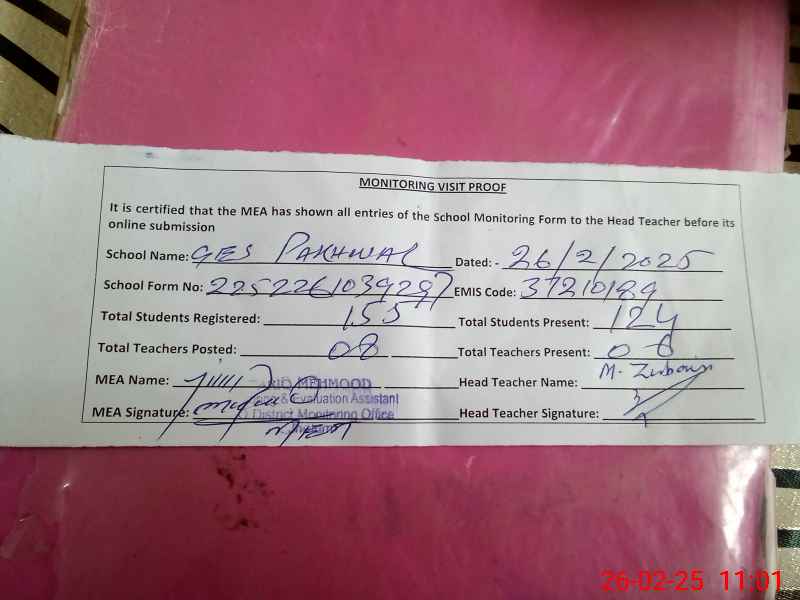 MONITORING VISIT PROOF
It is certified that the MEA has shown all entries of the School Monitoring Form to the Head Teacher before its
online submission
School Name: GES PAKHWAL Dated: - 26/2/2025
School Form No: EMIS Code: 37210189
Total Students Registered: 155 Total Students Present: 124
Total Teachers Posted: 08 Total Teachers Present: 08
MEA Name: MEHMOOD Head Teacher Name: M.
& Evaluation Assistant
MEA Signature: District Monitoring Office Head Teacher Signature:
26-02-25 11:01